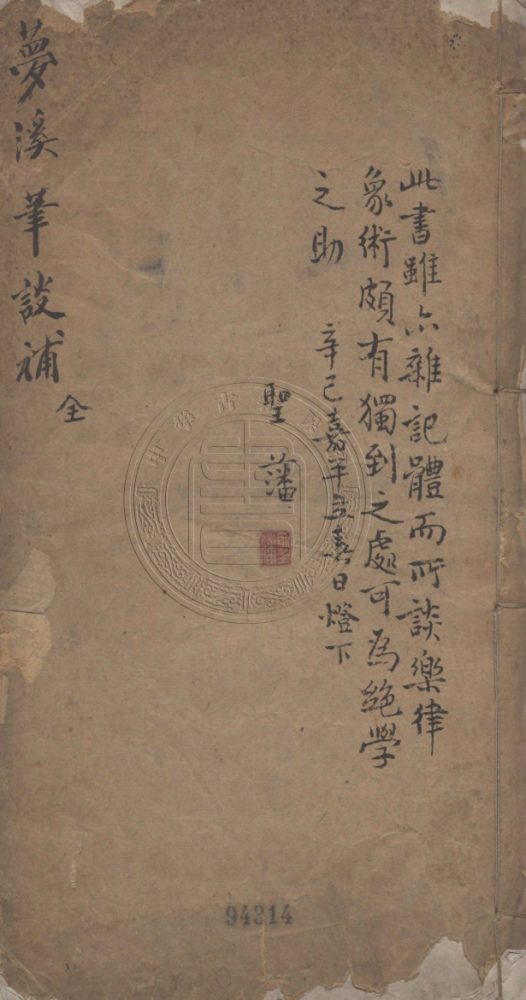 此書雖亦雜記體而所談樂律
象術頗有獨到之處可爲絕學
之助
辛巳嘉平立春日燈下
聖藩
夢溪筆談補
全
94314